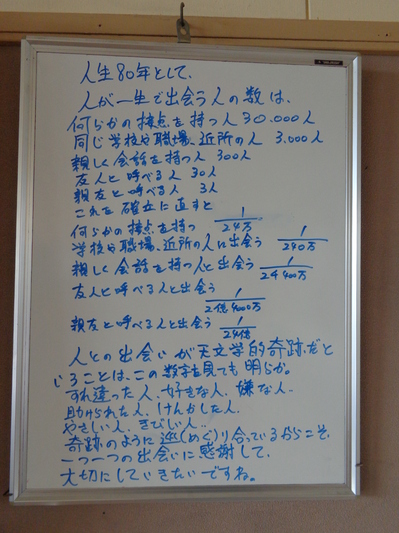 人生80年として、
人が一生で出会う人の数は、
何らかの接点を持つ人 30.000人
同じ学校や職場、近所の人 3.000人
親しく会話を持つ人 300人
友人と呼べる人 30人
親友と呼べる人 3人
これを確立に直すと
何らかの接点を持つ 1/24万
学校や職場、近所の人に出会う 1/240万
親しく会話を持つ人と出会う 1/2400万
友人と呼べる人と出会う
1/2億4000万
親友と呼べる人と出会う 1/24億
人との出会いが天文学的奇跡だと
いうことは、この数字を見ても明らか。
すれ違った人、好きな人、嫌な人..
助けられた人、けんかした人、
やさしい人、きびしい人..
奇跡のように巡(めぐ)り合っているからこそ、
一つ一つの出会いに感謝して、
大切にしていきたいですね。